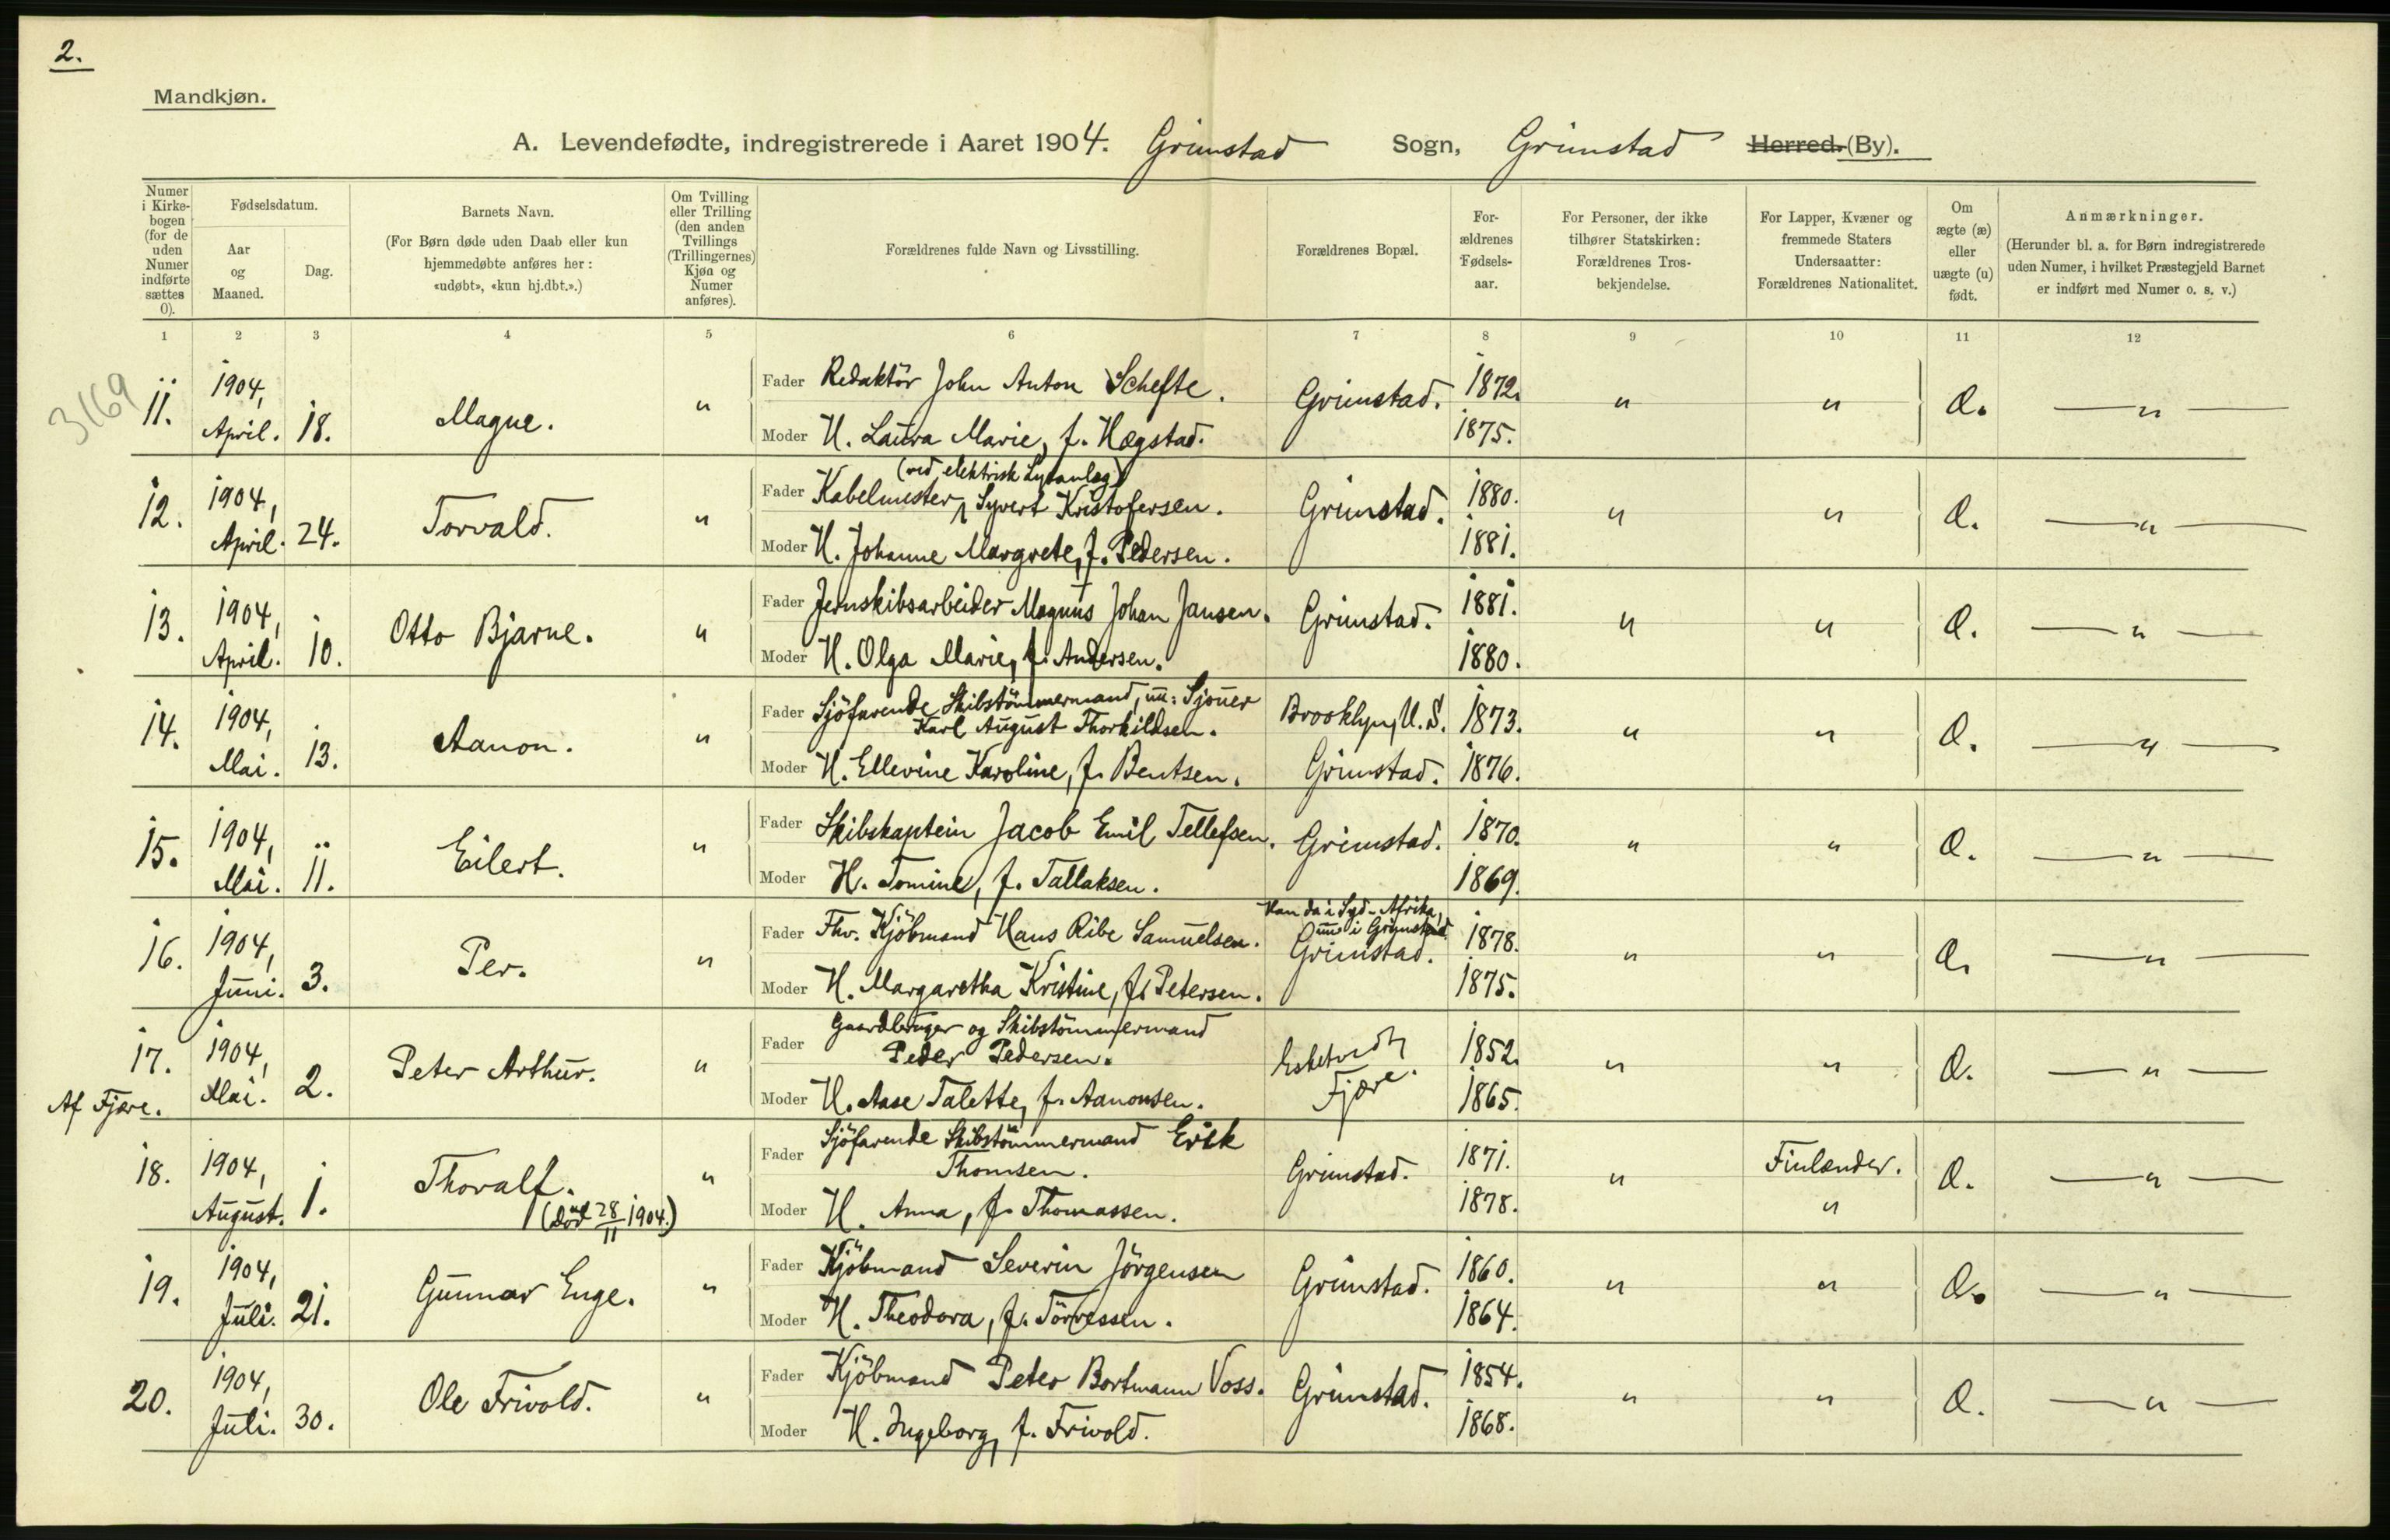 2.
Mandkjøn.
A. Levendefødte, indregistrerede i Aaret 1904. Grimstad Sogn, Grimstad Herred. (By).
Numer i Kirke-bogen (for de uden Numer indførte sættes 0).
Fødselsdatum.
Aar og Maaned.
Dag.
Barnets Navn.
(For Børn døde uden Daab eller kun hjemmedøbte anføres her: «udøbt», «kun hj.dbt.».)
Om Tvilling eller Trilling (den anden Tvillings (Trillingernes) Kjøn og Numer anføres).
Forældrenes fulde Navn og Livsstilling.
Forældrenes Bopæl.
For-ældrenes Fødsels-aar.
For Personer, der ikke tilhører Statskirken: Forældrenes Tros-bekjendelse.
For Lapper, Kvæner og fremmede Staters Undersaatter: Forældrenes Nationalitet.
Om ægte (æ) eller uægte (u) født.
Anmærkninger.
(Herunder bl. a. for Børn indregistrerede uden Numer, i hvilket Præstegjeld Barnet er indført med Numer o. s. v.)
1 2 3 4 5 6 7 8 9 10 11 12
3169
11. 1904, April. 18. Magne. " Fader Redaktör John Anton Schefte. Grimstad. 1872. " " Æ. — " —
Moder H. Laura Marie, f. Hægstad. 1875.
(ved elektrisk Lysanlæg)
12. 1904, April. 24. Torvald. " Fader Kabelmester, Syvert Kristofersen. Grimstad. 1880. " " Æ. — " —
Moder H. Johanne Margrete, f. Pedersen. 1881.
13. 1904, April. 10. Otto Bjarne. " Fader Jernskibsarbeider Magnus Johan Jansen. Grimstad. 1881. " " Æ. — " —
Moder H. Olga Marie, f. Andersen. 1880.
14. 1904, Mai. 13. Aanon. " Fader Sjöfarende Skibstömmermand, nu: Sjouer
Karl August Thorkildsen. Brooklyn, U. S. 1873. " " Æ. — " —
Moder H. Ellevine Karoline, f. Bentsen. Grimstad. 1876.
15. 1904, Mai. 11. Eilert. " Fader Skibskaptein Jacob Emil Tellefsen. Grimstad. 1870. " " Æ. — " —
Moder H. Tomine, f. Tallaksen. 1869.
Han da i Syd-Afrika,
nu i Grimstad.
16. 1904, Juni. 3. Per. " Fader Fhv. Kjöbmand Hans Ribe Samuelsen. Grimstad. 1878. " " Æ. — " —
Moder H. Margaretha Kristine, f. Petersen. 1875.
17. 1904, Mai. 2. Peter Arthur. " Fader Gaardbruger og Skibstömmermand
Peder Pedersen. Esketvedt 1852. " " Æ. — " —
Af Fjære. Moder H. Aase Talette, f. Aanonsen. Fjære. 1865.
18. 1904, August. 1. Thoralf. " Fader Sjöfarende Skibstömmermand Erik
Thomsen. Grimstad. 1871. " Finlænder. Æ. — " —
(död 28/11 1904.) Moder H. Anna, f. Thomassen. 1878. "
19. 1904, Juli. 21. Gunnar Enge. " Fader Kjöbmand Severin Jörgensen Grimstad. 1860. " " Æ. — " —
Moder H. Theodora, f. Törressen. 1864.
20. 1904, Juli. 30. Ole Frivold. " Fader Kjöbmand Peter Bortmann Voss. Grimstad. 1854. " " Æ. — " —
Moder H. Ingeborg, f. Frivold. 1868.